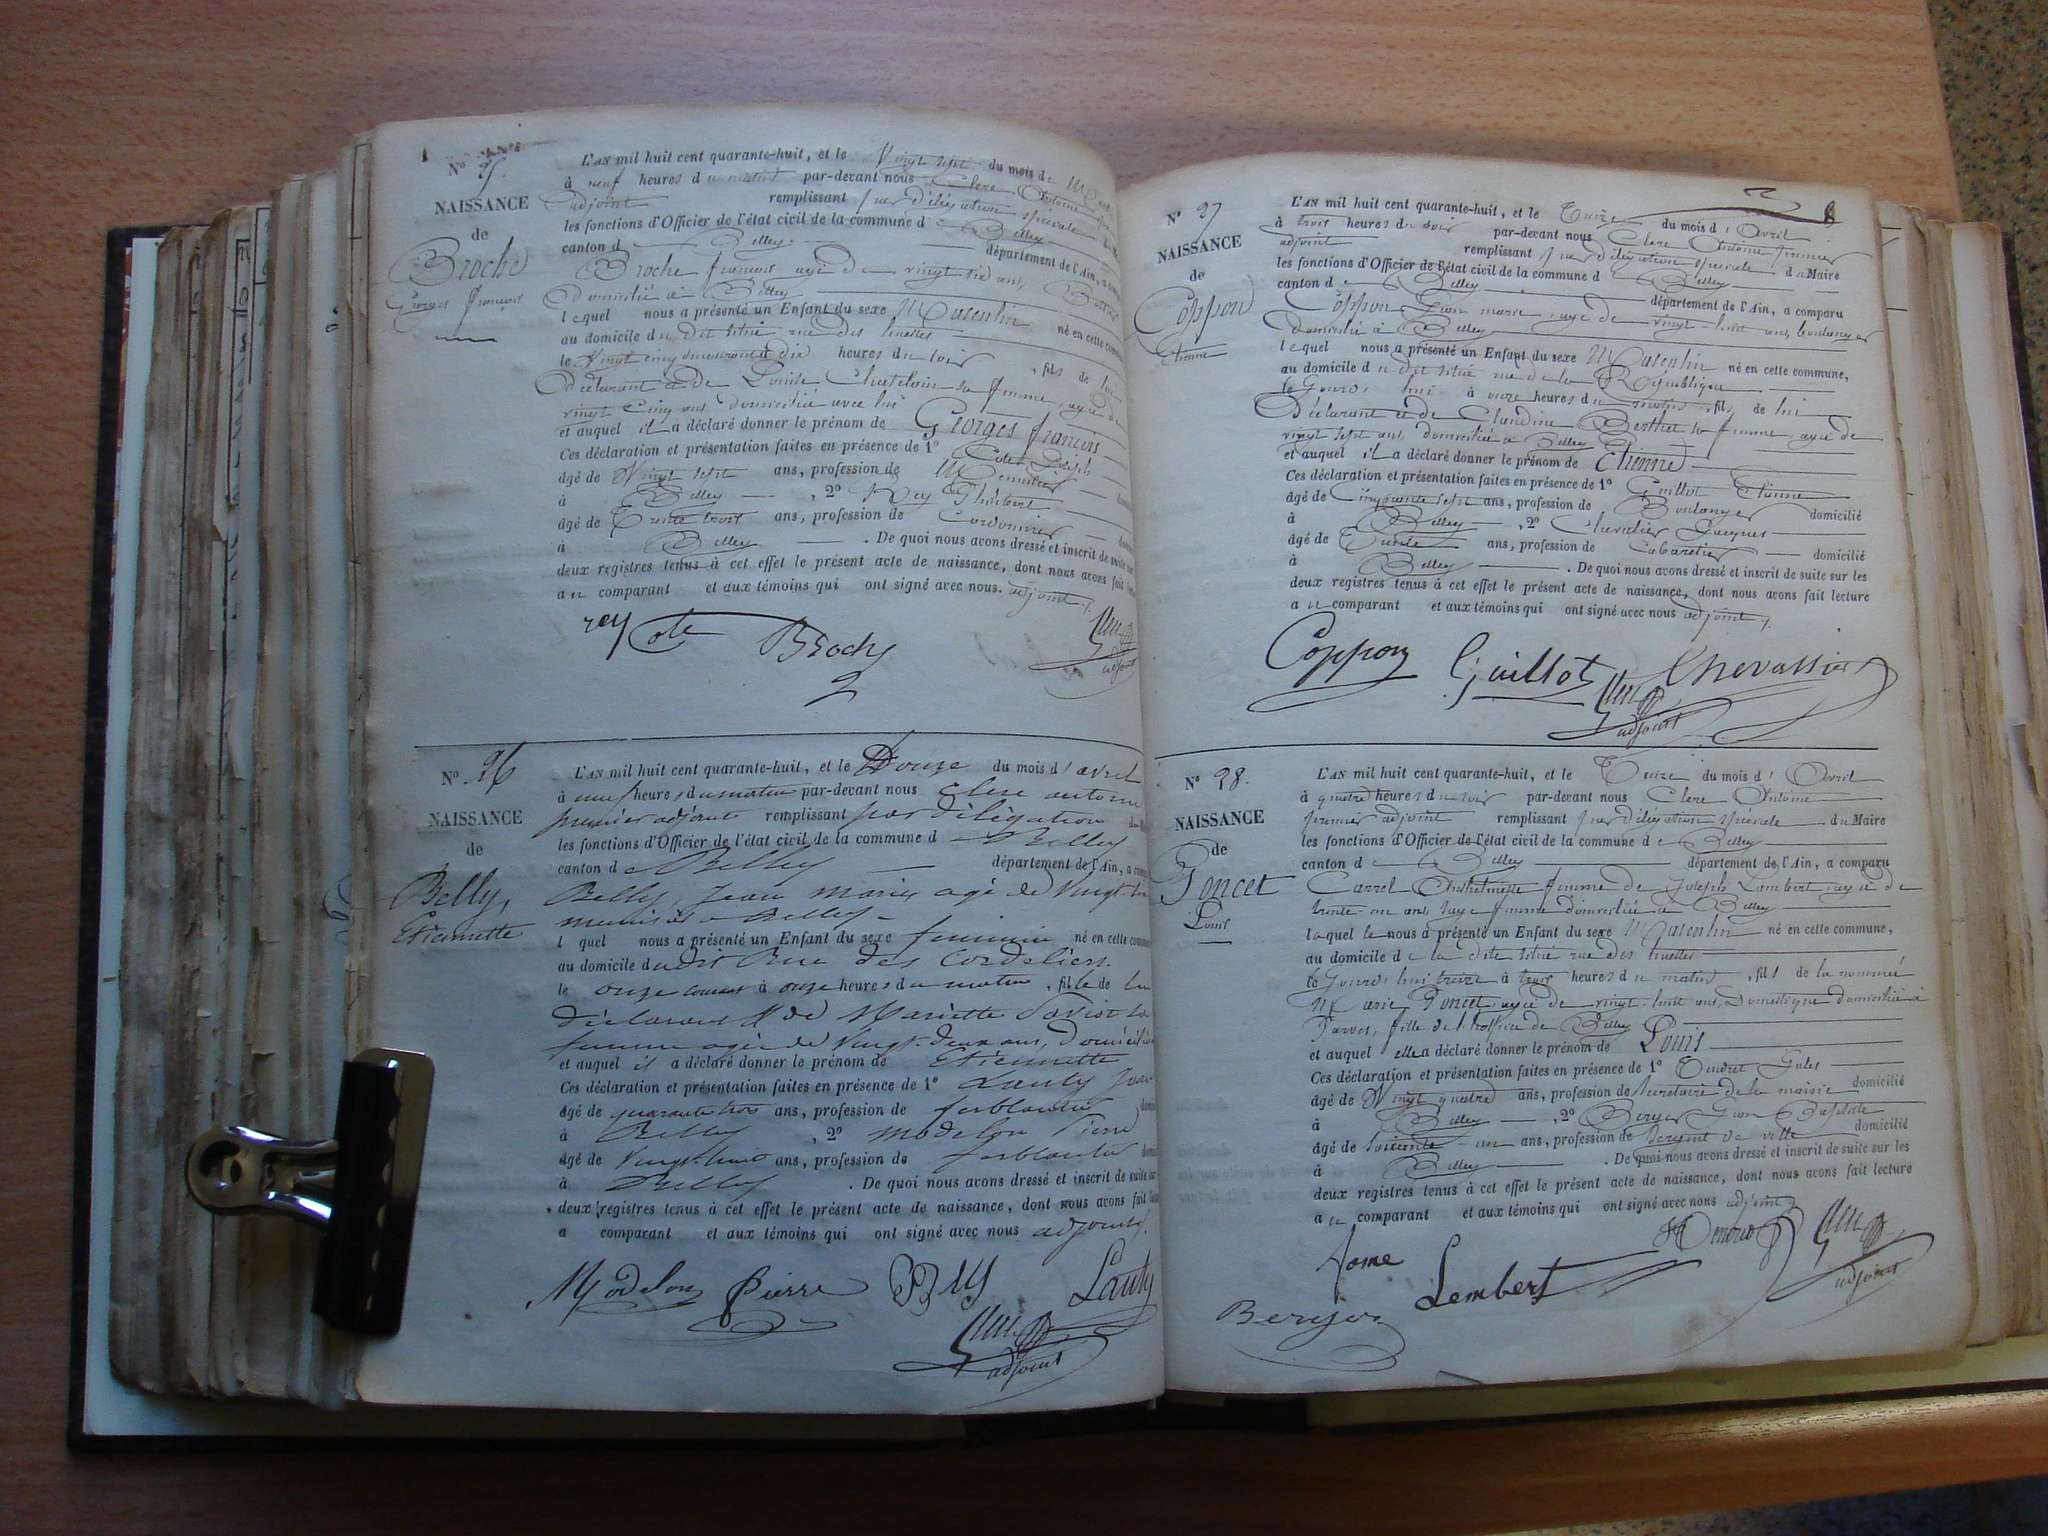 N° 25.
NAISSANCE
de
Broche
Georges françois
L'AN mil huit cent quarante-huit, et le Vingt sept du mois de
à neuf heures du matin par-devant nous Clerc Antoine
adjoint remplissant par délégation spéciale
les fonctions d'Officier de l'état civil de la commune de Belley
canton de Belley département de l'Ain, a
Broche françois agé de vingt six ans,
Domicilié à Belley
lequel nous a présenté un Enfant du sexe Masculin né en cette
au domicile du dit situé rue des
le Vingt cinq courant à dix heures du soir, fils de lui
déclarant et de Louise Chatelain sa femme, agée de
vingt cinq ans domiciliée avec lui
et auquel il a déclaré donner le prénom de Georges françois
Ces déclaration et présentation faites en présence de 1° Cote Joseph
âgé de Vingt sept ans, profession de Menuisier
à Belley, 2° Rey Philibert
âgé de Trente trois ans, profession de Cordonnier
à Belley. De quoi nous avons dressé et inscrit de suite sur
deux registres tenus à cet effet le présent acte de naissance, dont nous avons fait
au comparant et aux témoins qui ont signé avec nous. adjoint
rey Cote Broche
adjoint
N° 26
NAISSANCE
de
Belly,
Etiennette
L'AN mil huit cent quarante-huit, et le Douze du mois d'avril
à neuf heures du matin par-devant nous Clerc antoine
premier adjoint remplissant par délégation
les fonctions d'Officier de l'état civil de la commune d Belley
canton de Belley département de l'Ain, a
Belly, Jean Marie, agé de Vingt
à Belley
l quel nous a présenté un Enfant du sexe feminin né en cette
au domicile dudit Rue des Cordeliers.
le onze courant à onze heures du matin, fille de lui
déclarant & de Mariette Saviot sa
femme agée de Vingt-deux ans, Domiciliée
et auquel il a déclaré donner le prénom de Etiennette
Ces déclaration et présentation faites en présence de 1° Lauty Jean
âgé de quarante trois ans, profession de ferblantier
à Belley, 2° Modelon Pierre
âgé de Vingt-huit ans, profession de ferblantier
à Belley. De quoi nous avons dressé et inscrit de suite sur
deux registres tenus à cet effet le présent acte de naissance, dont nous avons fait
a comparant et aux témoins qui ont signé avec nous adjoint.
Modelon Pierre Belly Lauty
adjoint
N° 27
NAISSANCE
de
Coppon
Etienne
L'AN mil huit cent quarante-huit, et le Treize du mois d'Avril
à trois heures du soir par-devant nous Clerc Antoine premier
adjoint remplissant par délégation spéciale du Maire
les fonctions d'Officier de l'état civil de la commune de Belley
canton de Belley département de l'Ain, a comparu
Coppon Jean marie agé de vingt-huit ans, boulanger
domicilié à Belley
lequel nous a présenté un Enfant du sexe Masculin né en cette commune,
au domicile du dit situé rue de la République
le Jourd'hui à onze heures du matin, fils de lui
Déclarant et de Claudine Berthet sa femme agée de
vingt sept ans, domiciliée à Belley
et auquel il a déclaré donner le prénom de Etienne
Ces déclaration et présentation faites en présence de 1° Guillot Etienne
âgé de Cinquante sept ans, profession de Boulanger domicilié
à Belley, 2° Jacques
âgé de Trente ans, profession de Cabaretier domicilié
à Belley. De quoi nous avons dressé et inscrit de suite sur les
deux registres tenus à cet effet le présent acte de naissance, dont nous avons fait lecture
au comparant et aux témoins qui ont signé avec nous adjoint
Coppon Guillot
adjoint
N° 28.
NAISSANCE
de
Poncet
Louis
L'AN mil huit cent quarante-huit, et le Treize du mois d'Avril
à quatre heures du soir par-devant nous Clerc Antoine
premier adjoint remplissant par délégation spéciale du Maire
les fonctions d'Officier de l'état civil de la commune de Belley
canton de Belley département de l'Ain, a comparu
Carrel Anthelmette femme de Joseph Lambert agée de
trente-un ans, sage femme domiciliée à Belley
laquelle nous a présenté un Enfant du sexe Masculin né en cette commune,
au domicile de la dite situé rue des
le Jourd'hui treize à trois heures du matin, fils de la nommée
Marie Poncet agée de vingt-huit ans, Domestique domiciliée à
Parves, fille de l'hospice de Belley
et auquel elle a déclaré donner le prénom de Louis
Ces déclaration et présentation faites en présence de 1° Tendret Jules
âgé de Vingt quatre ans, profession de Secretaire de la mairie domicilié
à Belley, 2° Berger Jean Baptiste
âgé de Soixante-un ans, profession de Sergent de ville domicilié
à Belley. De quoi nous avons dressé et inscrit de suite sur les
deux registres tenus à cet effet le présent acte de naissance, dont nous avons fait lecture
au comparant et aux témoins qui ont signé avec nous adjoint
fame Lembert
Berger
adjoint